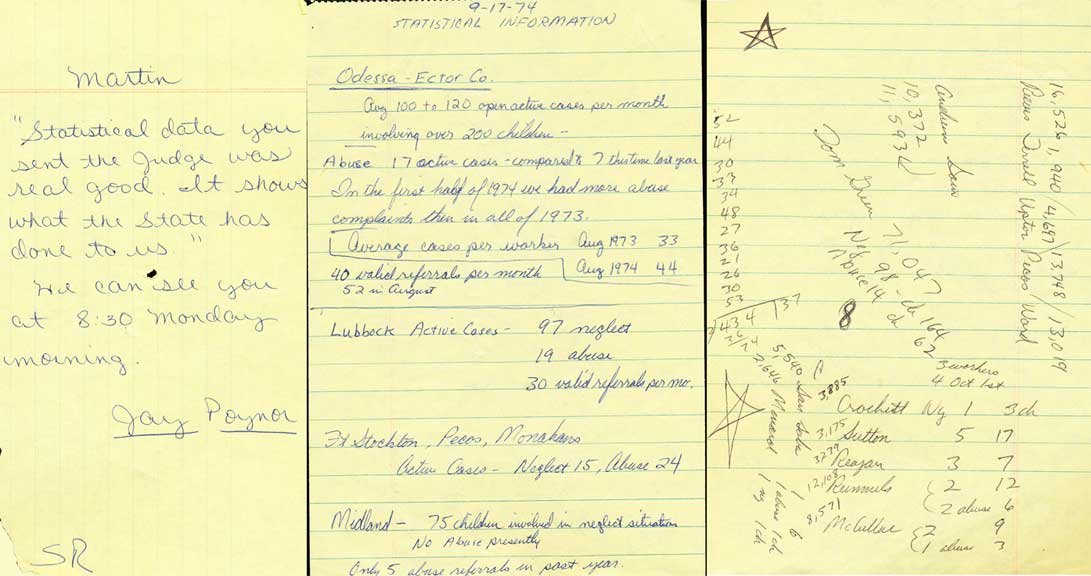 Martin
"Statistical data you
sent the Judge was
real good. It shows
what the State has
done to us."
We can see you
at 8:30 Monday
morning.
Jay Poynor
SR
9-17-74
STATISTICAL INFORMATION
Odessa - Ector Co.
Avg 100 to 120 open active cases per month
involving over 200 children -
Abuse 17 active cases - compared to 7 this time last year
In the first half of 1974 we had more abuse
complaints then in all of 1973.
Average cases per worker Aug 1973 33
Aug 1974 44
40 valid referrals per month
52 in August
Lubbock Active Cases - 97 neglect
19 abuse
30 valid referrals per mo.
Ft Stockton, Pecos, Monahans
Active Cases - Neglect 15, Abuse 24
Midland - 75 children involved in neglect situation
No Abuse presently
Only 5 abuse referrals in past year.
16,526 1,940/4,697/13,748/13,019
Reeves Terrell Upton Pecos Ward
10,372
Tom Green 71,047
Ng 98 - ch 164
Abuse 14 ch 62
8
52
44
30
33
34
48
27
36
21
26
30
53
434
37
5,540 San Saba
2,646 Menard
1 abuse 1 ch
1 ng 1 ch
3 workers
4 Oct 1st
3,885 Crockett Ng 1 3 ch
3,175 Sutton 5 17
3239 Reagan 3 7
12,108 Runnels 2 12
2 abuse 6
8,571 McCulloc 2 9
1 abuse 3